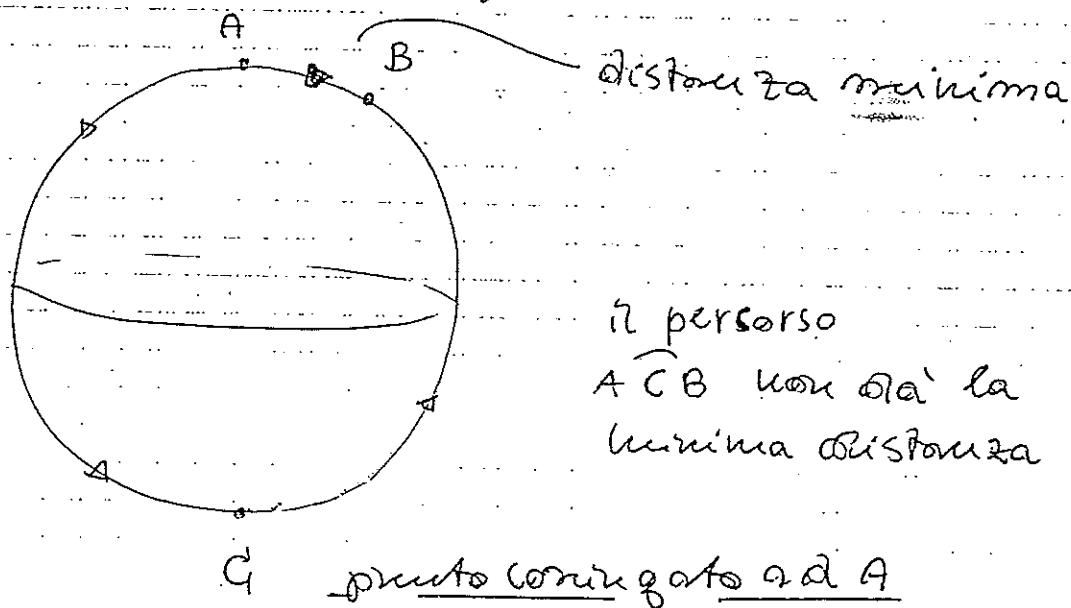 A
B
distanza minima
il persorso
ACB non dà la
minima distanza
C punto coniugato ad A